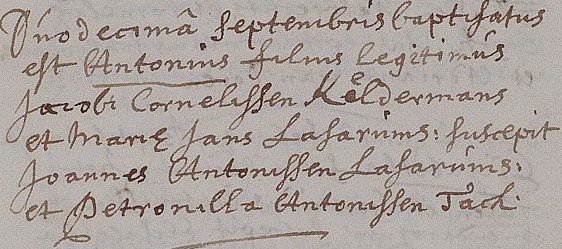 Duodecimâ septembris baptisatus
est Antonius filius legitimus
Jacobi Cornelissen Keldermans
et Marię Jans Lasarums: suscepit
Joannes Antonissen Lasarums:
et Petronilla Antonissen Tack.